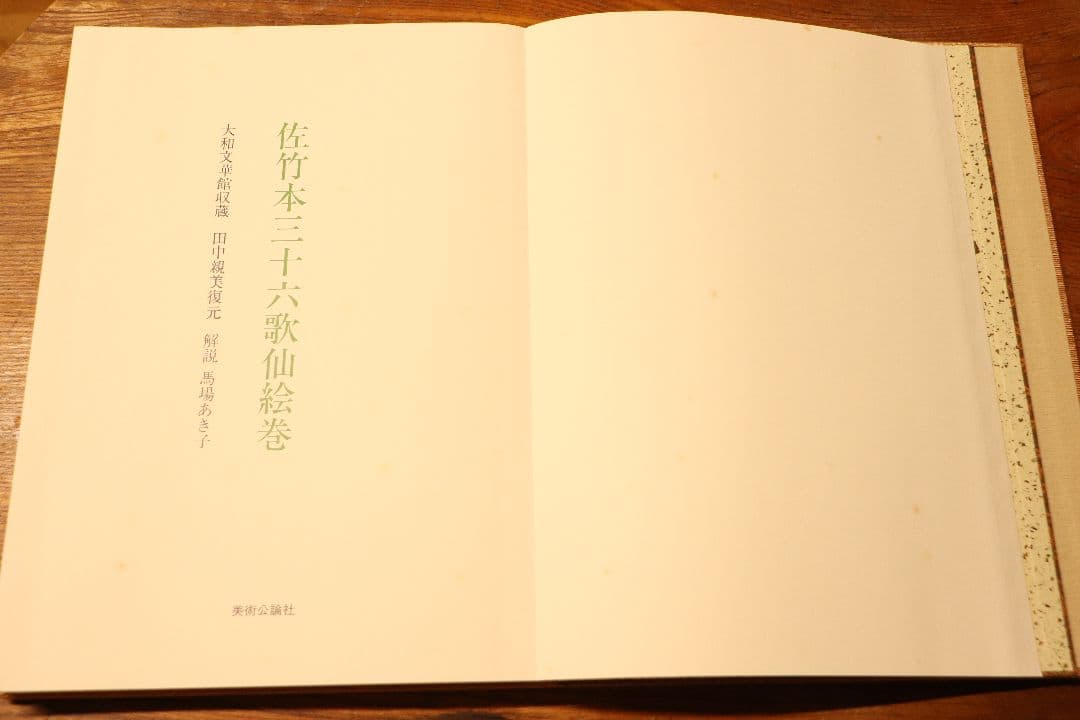 佐竹本三十六歌仙絵巻
大和文華館収蔵 田中親美復元 解説 馬場あき子
美術公論社